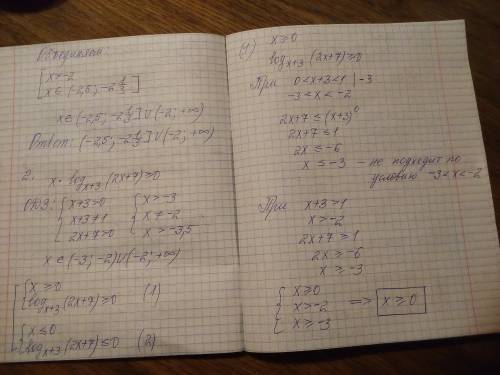 Объединяем:
[ x > -2
x ∈ (-2,5; -2 1/3]
x ∈ (-2,5; -2 1/3] ∪ (-2; +∞)
Ответ: (-2,5; -2 1/3] ∪ (-2; +∞)
2. x · log_{x+3} (2x+7) ≥ 0
ОДЗ: { x+3>0 { x > -3
x+3≠1 x ≠ -2
2x+7>0 x > -3,5
x ∈ (-3; -2) ∪ (-2; +∞)
[ { x ≥ 0
log_{x+3} (2x+7) ≥ 0 (1)
{ x ≤ 0
log_{x+3} (2x+7) ≤ 0 (2)
(1) x ≥ 0
log_{x+3} (2x+7) ≥ 0
При 0 < x+3 < 1 | -3
-3 < x < -2
2x+7 ≤ (x+3)^0
2x+7 ≤ 1
2x ≤ -6
x ≤ -3 – не подходит по
условию -3 < x < -2
При x+3 > 1
x > -2
2x+7 ≥ 1
2x ≥ -6
x ≥ -3
{ x ≥ 0
x > -2 => x ≥ 0
x ≥ -3